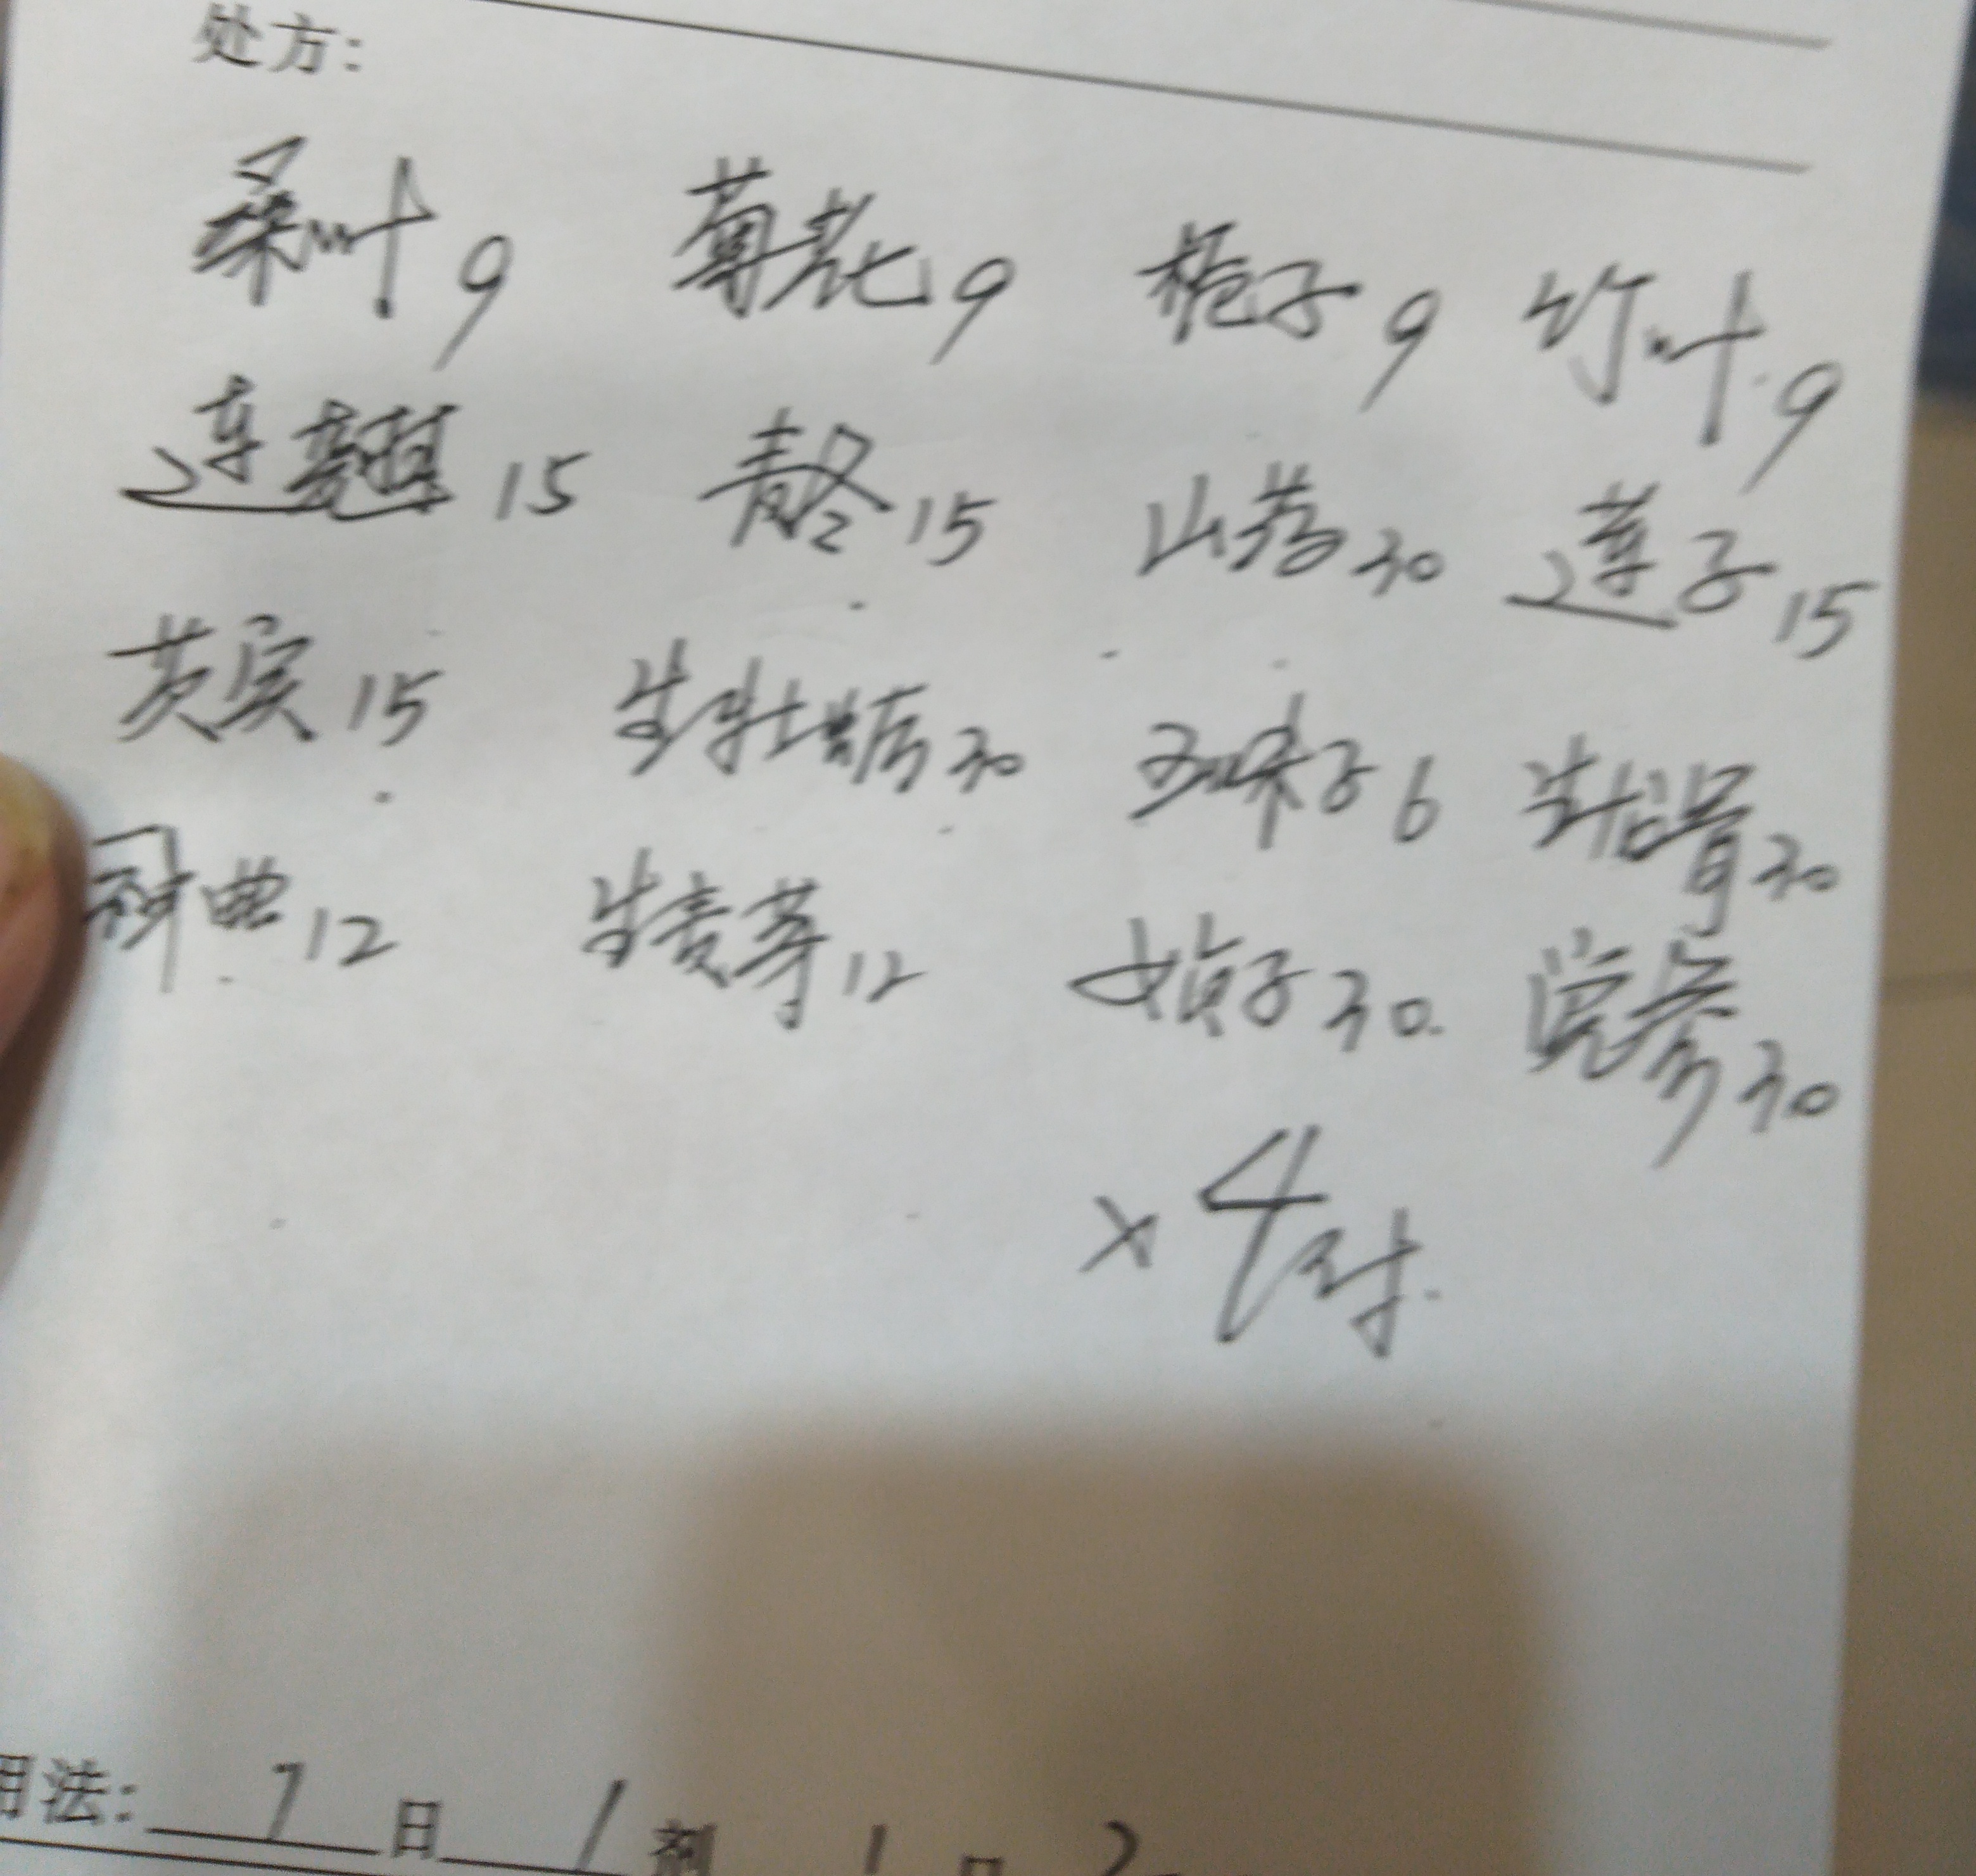 处方:
桑叶9 菊花9 栀子9 竹叶9
连翘15 15 山药30 莲子15
芡实15 生牡蛎30 五味子6 生龙骨30
神曲12 生麦芽12 女贞子30 党参30
×4付.
用法: 1 日 1 剂 1 日 2